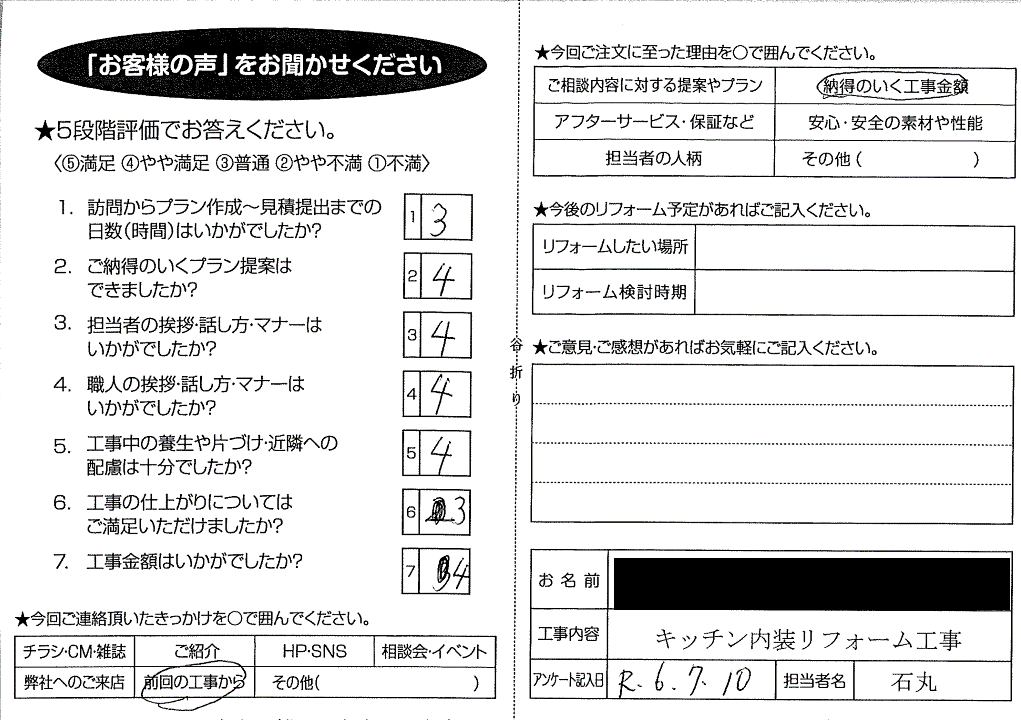 「お客様の声」をお聞かせください
★5段階評価でお答えください。
〈⑤満足 ④やや満足 ③普通 ②やや不満 ①不満〉
1. 訪問からプラン作成〜見積提出までの
日数(時間)はいかがでしたか?
1 3
2. ご納得のいくプラン提案は
できましたか?
2 4
3. 担当者の挨拶・話し方・マナーは
いかがでしたか?
3 4
4. 職人の挨拶・話し方・マナーは
いかがでしたか?
4 4
5. 工事中の養生や片づけ・近隣への
配慮は十分でしたか?
5 4
6. 工事の仕上がりについては
ご満足いただけましたか?
6 3
7. 工事金額はいかがでしたか?
7 4
★今回ご連絡頂いたきっかけを○で囲んでください。
チラシ・CM・雑誌 ご紹介 HP・SNS 相談会・イベント
弊社へのご来店 前回の工事から その他( )
谷折り
★今回ご注文に至った理由を○で囲んでください。
ご相談内容に対する提案やプラン 納得のいく工事金額
アフターサービス・保証など 安心・安全の素材や性能
担当者の人柄 その他( )
★今後のリフォーム予定があればご記入ください。
リフォームしたい場所
リフォーム検討時期
★ご意見・ご感想があればお気軽にご記入ください。
お名前
工事内容 キッチン内装リフォーム工事
アンケート記入日 R.6.7.10 担当者名 石丸